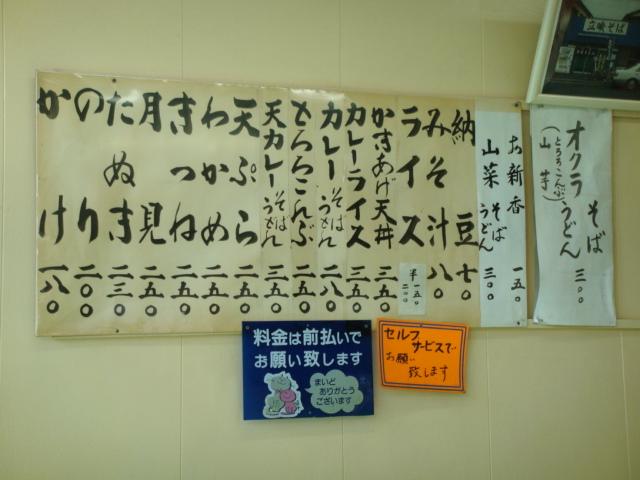 立喰そば
オクラ そば うどん 三〇〇
(とろろこんぶ 山芋)
お新香 一五〇
山菜 そば うどん 三〇〇
納豆 七〇
みそ汁 八〇
ライス 半一五〇 二〇〇
かきあげ天丼 三五〇
カレーライス 三五〇
カレー そば うどん 二八〇
とろろこんぶ 二五〇
天カレー そば うどん 三五〇
天ぷら 二五〇
わかめ 二五〇
きつね 二五〇
月見 二五〇
たぬき 二三〇
のり 二〇〇
かけ 一八〇
料金は前払いで
お願い致します
まいど
ありがとう
ございます
セルフ
サービスで
お願い
致します